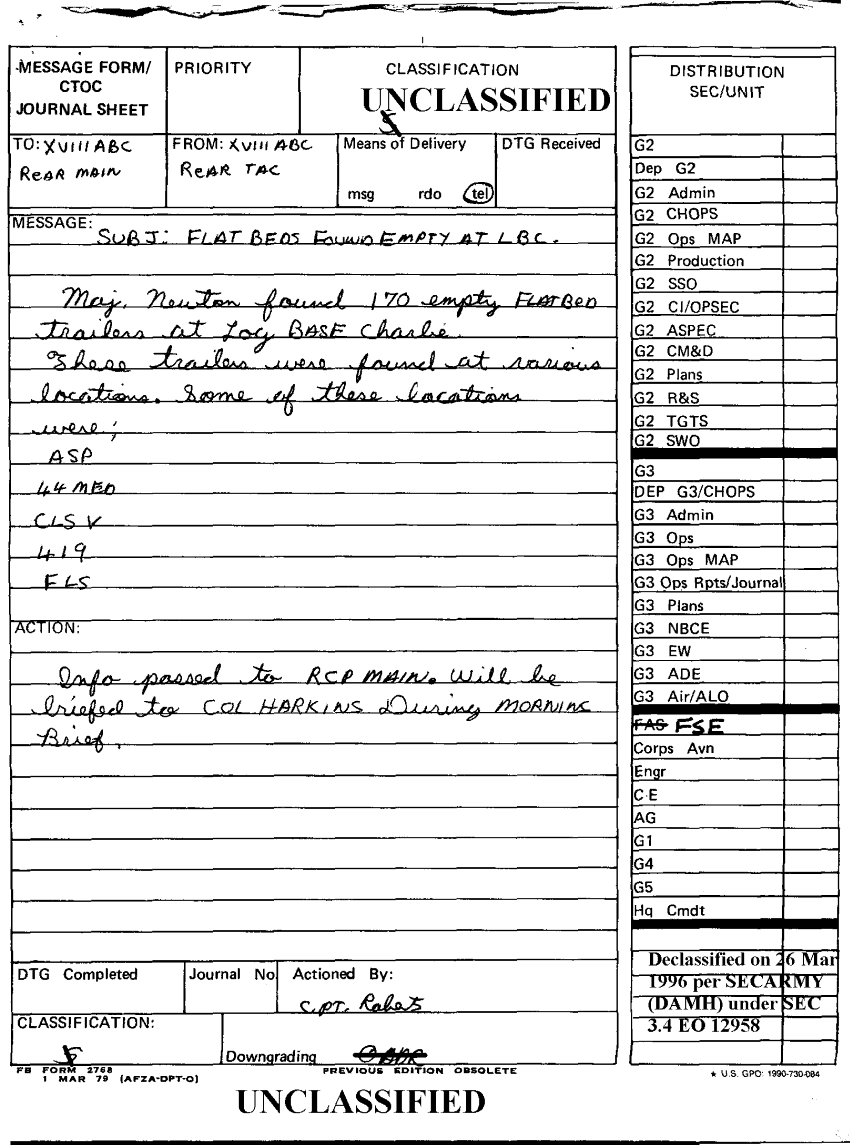 MESSAGE FORM/
CTOC
JOURNAL SHEET
PRIORITY
CLASSIFICATION
UNCLASSIFIED
S
TO: XVIII ABC
REAR MAIN
FROM: XVIII ABC
REAR TAC
Means of Delivery
msg rdo tel
DTG Received
MESSAGE:
SUBJ: FLAT BEDS FOUND EMPTY AT LBC.
Maj. Newton found 170 empty FLATBED
trailers at Log BASE Charlie.
These trailers were found at various
locations. Some of these locations
were;
ASP
44 MED
CLS V
419
FLS
ACTION:
Info passed to RCP MAIN. Will be
briefed to COL HARKINS During MORNING
Brief.
DTG Completed
Journal No
Actioned By:
CPT.
CLASSIFICATION:
S
Downgrading
OADR
FB FORM 2768
1 MAR 79 (AFZA-DPT-O)
PREVIOUS EDITION OBSOLETE
UNCLASSIFIED
DISTRIBUTION
SEC/UNIT
G2
Dep G2
G2 Admin
G2 CHOPS
G2 Ops MAP
G2 Production
G2 SSO
G2 CI/OPSEC
G2 ASPEC
G2 CM&D
G2 Plans
G2 R&S
G2 TGTS
G2 SWO
G3
DEP G3/CHOPS
G3 Admin
G3 Ops
G3 Ops MAP
G3 Ops Rpts/Journal
G3 Plans
G3 NBCE
G3 EW
G3 ADE
G3 Air/ALO
FAS FSE
Corps Avn
Engr
C-E
AG
G1
G4
G5
Hq Cmdt
Declassified on 26 Mar
1996 per SECARMY
(DAMH) under SEC
3.4 EO 12958
★ U.S. GPO: 1990-730-084